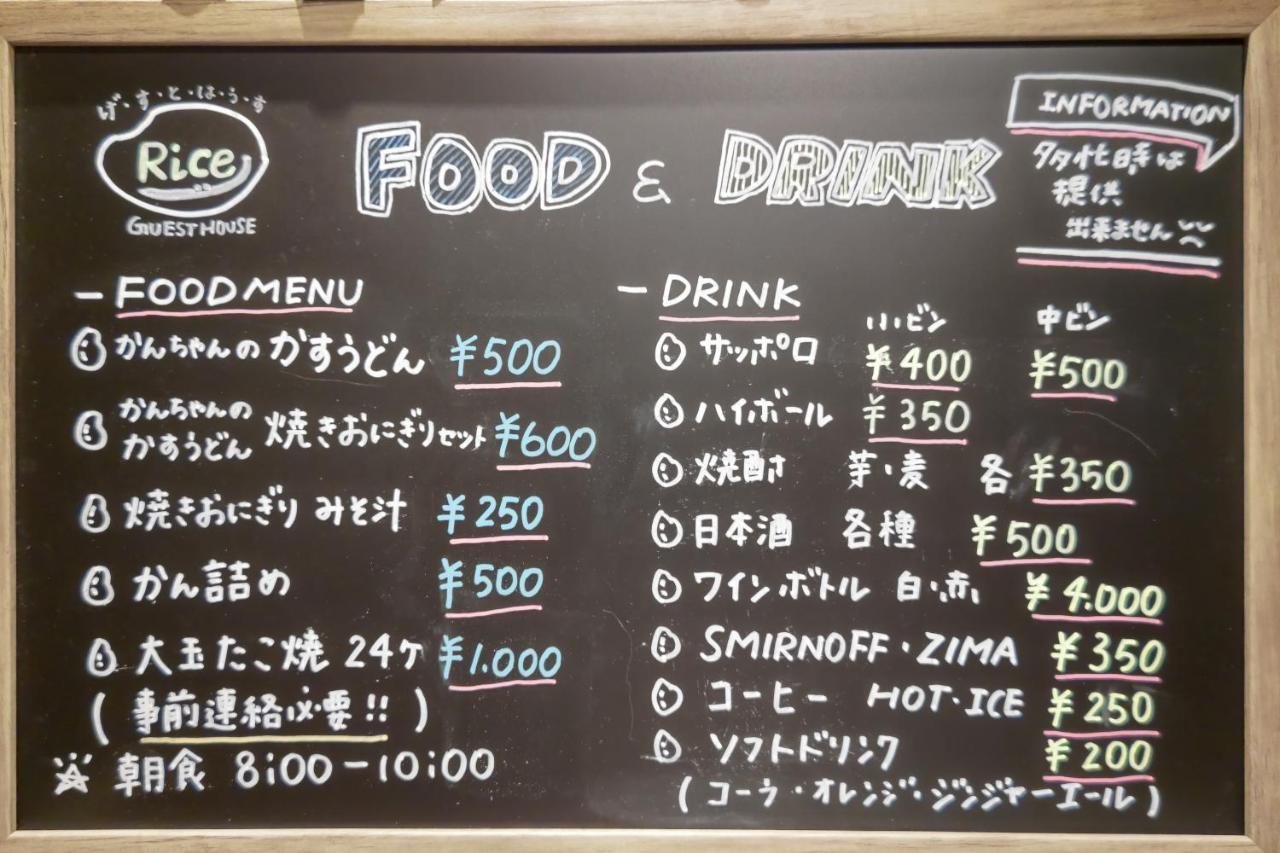 げ・す・と・は・う・す
Rice
GUEST HOUSE
FOOD & DRINK
INFORMATION
多忙時は
提供
出来ません
- FOOD MENU
かんちゃんの かすうどん ¥500
かんちゃんの
かすうどん 焼きおにぎりセット ¥600
焼きおにぎり みそ汁 ¥250
かん詰め ¥500
大玉たこ焼 24ヶ ¥1.000
( 事前連絡必要!! )
朝食 8:00-10:00
- DRINK
小ビン 中ビン
サッポロ ¥400 ¥500
ハイボール ¥350
焼酎 芋・麦 各 ¥350
日本酒 各種 ¥500
ワインボトル 白・赤 ¥4.000
SMIRNOFF・ZIMA ¥350
コーヒー HOT・ICE ¥250
ソフトドリンク ¥200
( コーラ・オレンジ・ジンジャーエール )